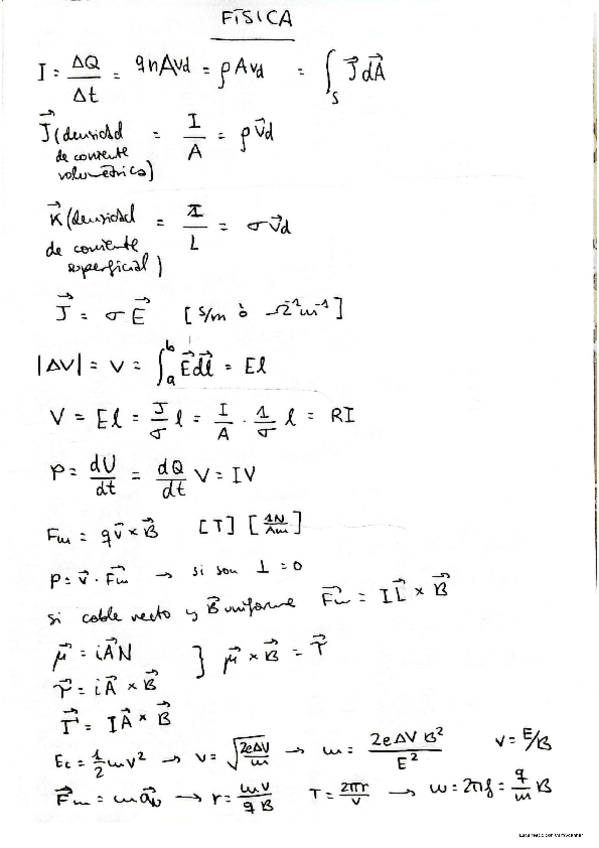 FÍSICA
I = ΔQ/Δt = qnAvd = ρAvd = ∫_S J⃗dA⃗
J⃗ (densidad de corriente volumétrica) = I/A = ρv⃗d
K⃗ (densidad de corriente superficial) = I/L = σv⃗d
J⃗ = σE⃗ [S/m ò Ω⁻¹m⁻¹]
|ΔV| = V = ∫_a^b E⃗dl⃗ = El
V = El = J/σ l = I/A · 1/σ l = RI
P = dU/dt = dQ/dt V = IV
Fm = qv⃗ × B⃗ [T] [1N/Am]
P = v⃗ · F⃗m → si son ⊥ = 0
si cable recto y B⃗ uniforme F⃗m = IL⃗ × B⃗
μ⃗ = iA⃗N } μ⃗ × B⃗ = τ⃗
τ⃗ = iA⃗ × B⃗
Γ⃗ = IA⃗ × B⃗
Ec = 1/2 mv² → v = √(2eΔV/m) → m = 2eΔV B²/E² v = E/B
F⃗m = ma⃗N → r = mv/qB T = 2πr/v → w = 2πf = q/m B